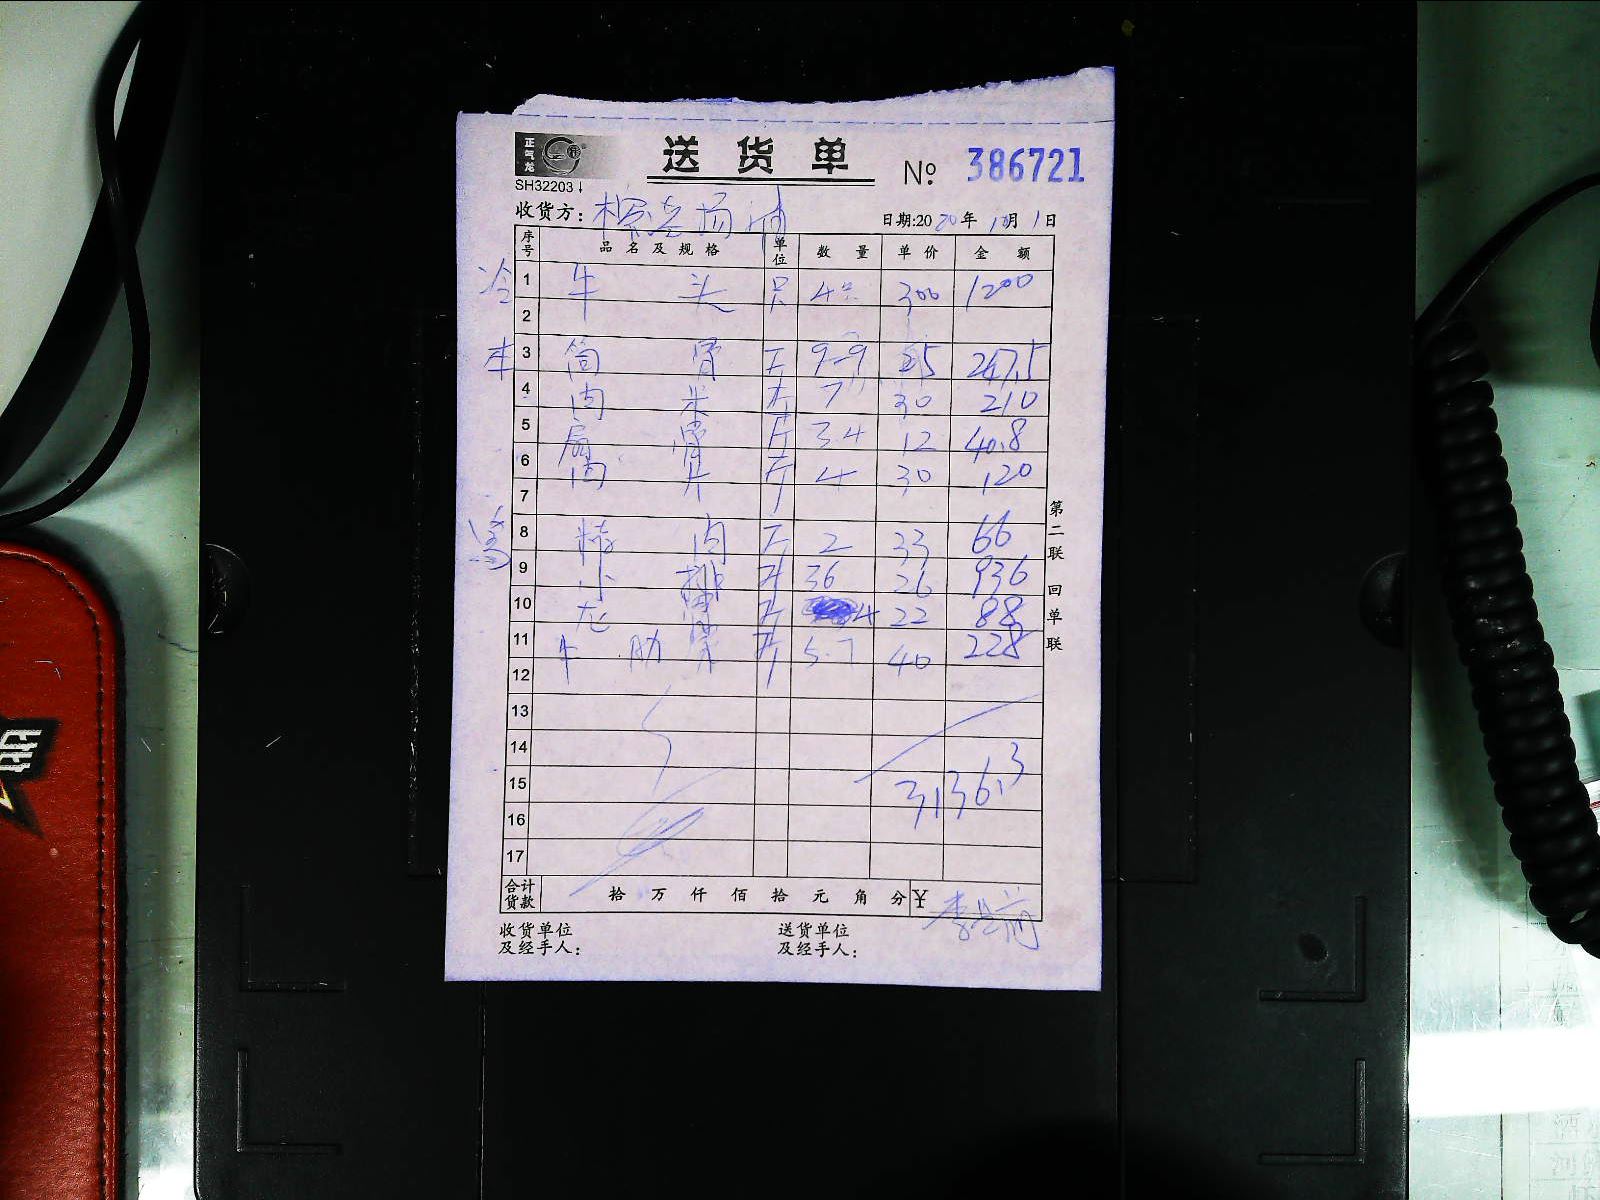 正气龙
送货单 № 386721
SH32203
收货方: 日期:2020年1月1日
序号 品名及规格 单位 数量 单价 金额
冷 1 牛头 只 4只 300 1200
2
3 筒骨 斤 9.9 25 247.5
4 肉米 斤 7 30 210
5 扇骨 斤 3.4 12 40.8
6 肉片 斤 4 30 120
7
8 精肉 斤 2 33 66
9 小排 斤 36 26 936
10 龙骨 斤 4 22 88
11 牛肋 斤 5.7 40 228
12
13
14
15 3136.3
16
17
合计货款 拾万仟佰拾元角分 ¥
收货单位及经手人: 送货单位及经手人:
第二联 回单联